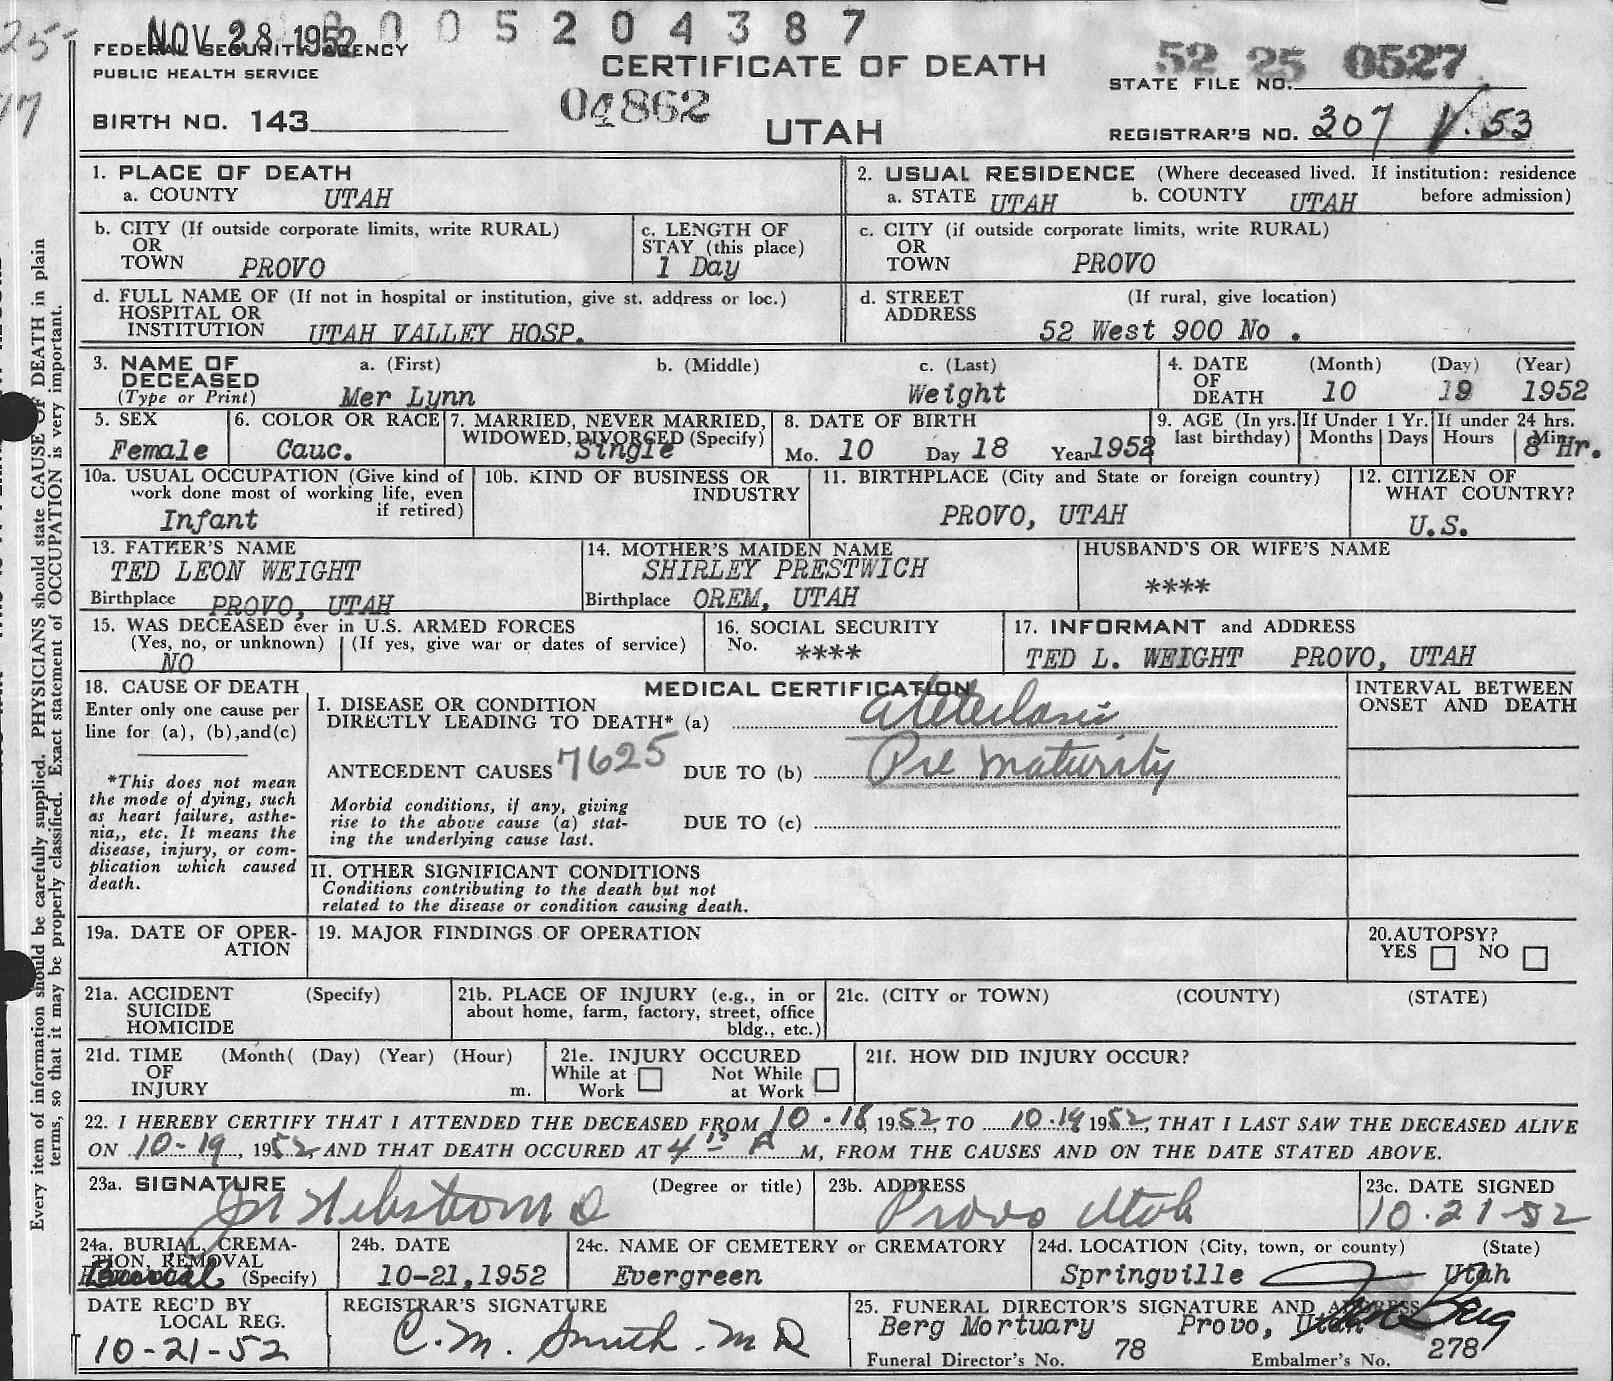 NOV 28 1952 0 0 5 2 0 4 3 8 7
FEDERAL SECURITY AGENCY
PUBLIC HEALTH SERVICE
CERTIFICATE OF DEATH
52 25 0527
STATE FILE NO.
04862
BIRTH NO. 143
UTAH
REGISTRAR'S NO. 307 V. 53
1. PLACE OF DEATH
a. COUNTY UTAH
2. USUAL RESIDENCE (Where deceased lived. If institution: residence before admission)
a. STATE UTAH b. COUNTY UTAH
b. CITY (If outside corporate limits, write RURAL)
OR
TOWN PROVO
c. LENGTH OF
STAY (this place)
1 Day
c. CITY (if outside corporate limits, write RURAL)
OR
TOWN PROVO
d. FULL NAME OF (If not in hospital or institution, give st. address or loc.)
HOSPITAL OR
INSTITUTION UTAH VALLEY HOSP.
d. STREET (If rural, give location)
ADDRESS
52 West 900 No .
3. NAME OF
DECEASED
(Type or Print)
a. (First) b. (Middle) c. (Last)
Mer Lynn Weight
4. DATE (Month) (Day) (Year)
OF
DEATH 10 19 1952
5. SEX
Female
6. COLOR OR RACE
Cauc.
7. MARRIED, NEVER MARRIED,
WIDOWED, DIVORCED (Specify)
Single
8. DATE OF BIRTH
Mo. 10 Day 18 Year 1952
9. AGE (In yrs.
last birthday)
If Under 1 Yr.
Months Days
If under 24 hrs.
Hours Min.
8 Hr.
10a. USUAL OCCUPATION (Give kind of
work done most of working life, even
if retired)
Infant
10b. KIND OF BUSINESS OR
INDUSTRY
11. BIRTHPLACE (City and State or foreign country)
PROVO, UTAH
12. CITIZEN OF
WHAT COUNTRY?
U.S.
13. FATHER'S NAME
TED LEON WEIGHT
Birthplace PROVO, UTAH
14. MOTHER'S MAIDEN NAME
SHIRLEY PRESTWICH
Birthplace OREM, UTAH
HUSBAND'S OR WIFE'S NAME
****
15. WAS DECEASED ever in U.S. ARMED FORCES
(Yes, no, or unknown) (If yes, give war or dates of service)
NO
16. SOCIAL SECURITY
No. ****
17. INFORMANT and ADDRESS
TED L. WEIGHT PROVO, UTAH
18. CAUSE OF DEATH
Enter only one cause per
line for (a), (b),and(c)
*This does not mean
the mode of dying, such
as heart failure, asthe-
nia,, etc. It means the
disease, injury, or com-
plication which caused
death.
MEDICAL CERTIFICATION
I. DISEASE OR CONDITION
DIRECTLY LEADING TO DEATH* (a) Atelectasis
ANTECEDENT CAUSES 7625 DUE TO (b) Pre maturity
Morbid conditions, if any, giving
rise to the above cause (a) stat-
ing the underlying cause last.
DUE TO (c)
INTERVAL BETWEEN
ONSET AND DEATH
II. OTHER SIGNIFICANT CONDITIONS
Conditions contributing to the death but not
related to the disease or condition causing death.
19a. DATE OF OPER-
ATION
19. MAJOR FINDINGS OF OPERATION
20.AUTOPSY?
YES NO
21a. ACCIDENT (Specify)
SUICIDE
HOMICIDE
21b. PLACE OF INJURY (e.g., in or
about home, farm, factory, street, office
bldg., etc.)
21c. (CITY or TOWN) (COUNTY) (STATE)
21d. TIME (Month( (Day) (Year) (Hour)
OF
INJURY m.
21e. INJURY OCCURED
While at Not While
Work at Work
21f. HOW DID INJURY OCCUR?
22. I HEREBY CERTIFY THAT I ATTENDED THE DECEASED FROM 10-18, 1952, TO 10-19 1952, THAT I LAST SAW THE DECEASED ALIVE
ON 10-19, 1952, AND THAT DEATH OCCURED AT 4 15 A M, FROM THE CAUSES AND ON THE DATE STATED ABOVE.
23a. SIGNATURE (Degree or title)
23b. ADDRESS
Provo Utah
23c. DATE SIGNED
10-21-52
24a. BURIAL, CREMA-
TION, REMOVAL
(Specify)
Burial
24b. DATE
10-21,1952
24c. NAME OF CEMETERY or CREMATORY
Evergreen
24d. LOCATION (City, town, or county) (State)
Springville Utah
DATE REC'D BY
LOCAL REG.
10-21-52
REGISTRAR'S SIGNATURE
C. M. Smith. M D
25. FUNERAL DIRECTOR'S SIGNATURE AND ADDRESS
Berg Mortuary Provo, Utah Berg
Funeral Director's No. 78 Embalmer's No. 278
Every item of information should be carefully supplied. PHYSICIANS should state CAUSE OF DEATH in plain
terms, so that it may be properly classified. Exact statement of OCCUPATION is very important.